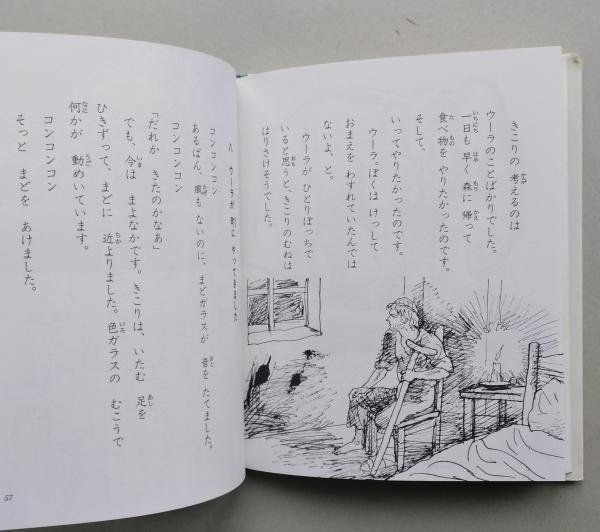 きこりの 考えるのは
ウーラのことばかりでした。
一日も 早く 森に 帰って
食べ物を やりたかったのです。
そして、
いってやりたかったのです。
ウーラ。ぼくは けっして
おまえを わすれていたんでは
ないよ、と。
ウーラが ひとりぼっちで
いると思うと、きこりのむねは
はりさけそうでした。
八 ウーラが やってきました
コンコンコン
あるばん、風も ないのに、まどガラスが 音を たてました。
コンコンコン
「だれか きたのかなあ」
でも、今は まよなかです。きこりは、いたむ 足を
ひきずって、まどに 近よりました。色ガラスの むこうで
何かが 動めいています。
コンコンコン
そっと まどを あけました。
57